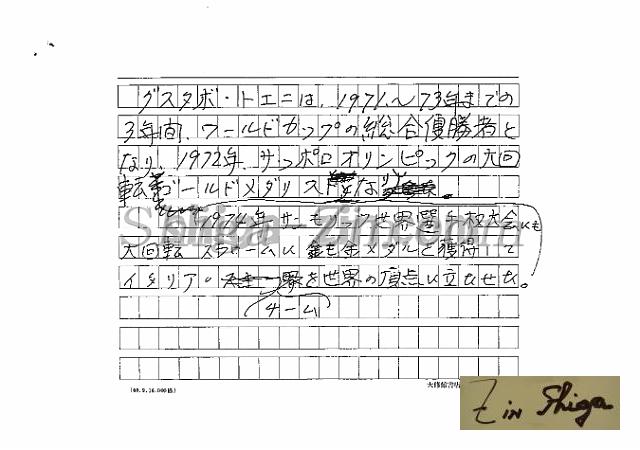 グスタボ・トエニは、1971〜73年までの
3年間、ワールドカップの総合優勝者と
なり、1972年、サッポロオリンピックの大回
転ゴールドメダリストとなり
1974年サンモリッツ世界選手権大会
大回転 スラローム 金メダルを獲得して
イタリア・チームを世界の頂点に立たせた。
(48.9.10.000㊞)
大修館書店
Shiga Zin
Z in Shiga